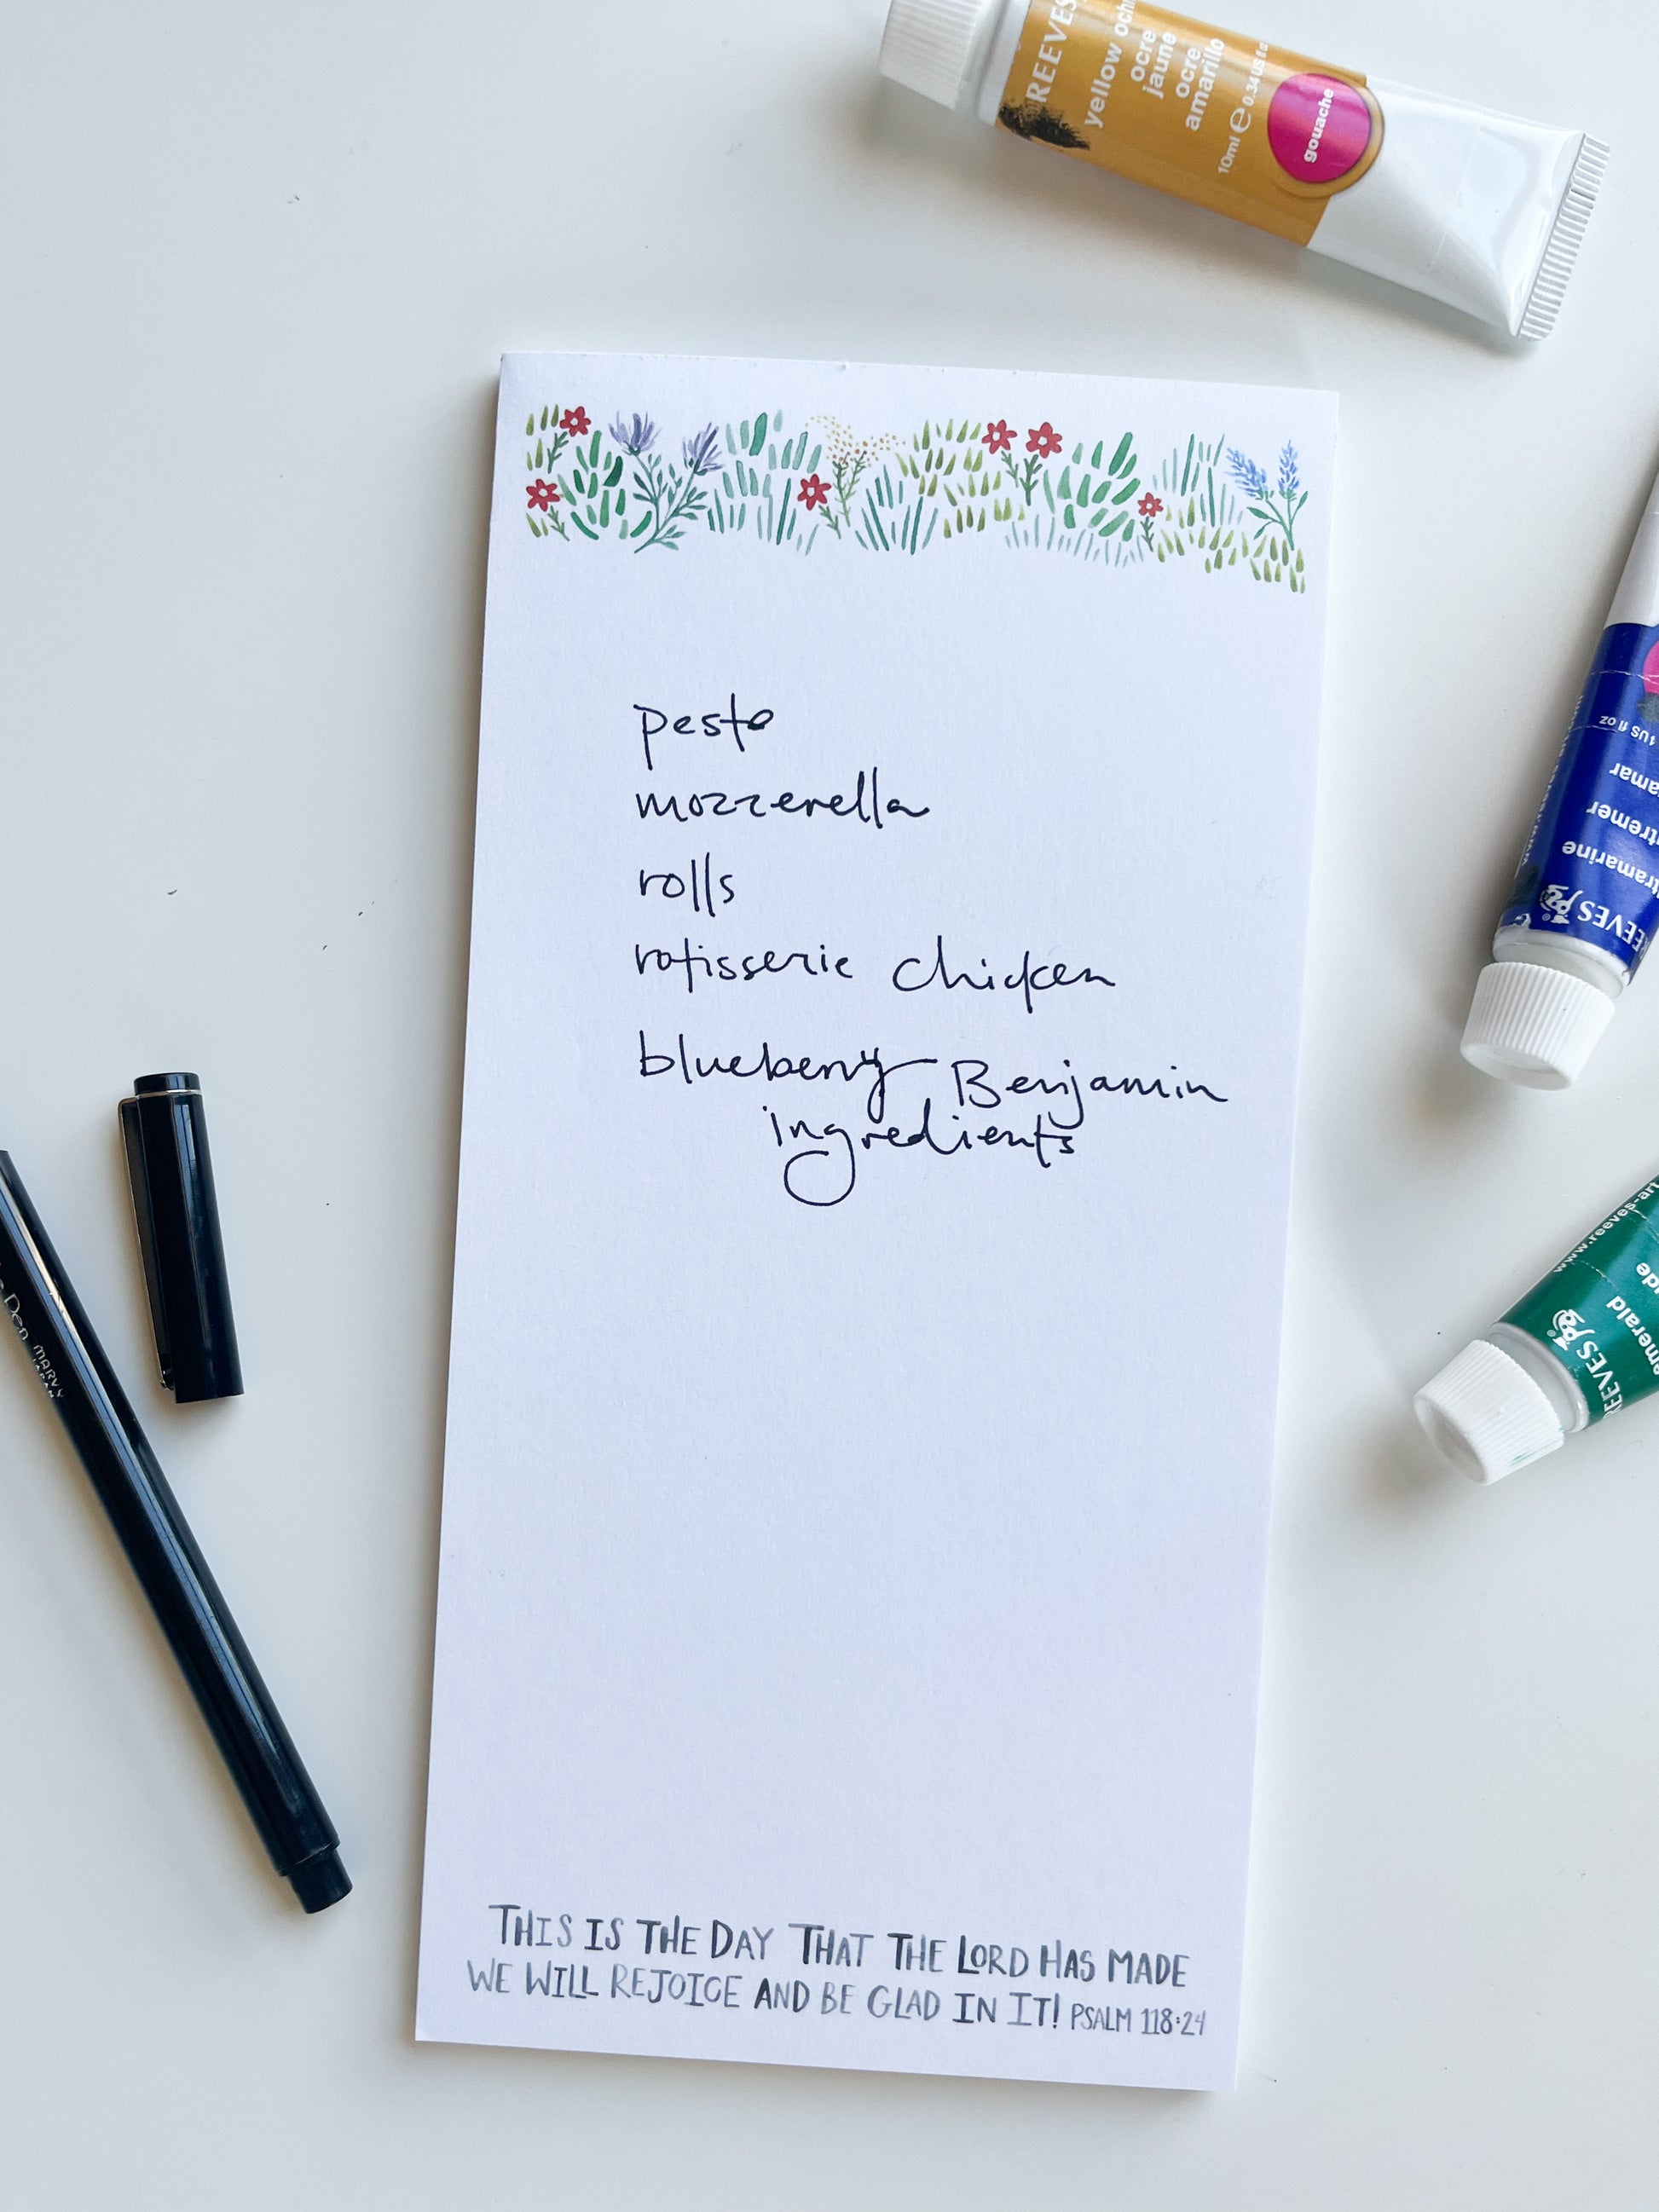 REEVES
yellow och
ocre
jaune
ocre
amarillo
10ml e 0.34 US fl oz
gouache
pesto
mozzerella
rolls
rotisserie chicken
blueberry Benjamin
ingredients
US fl oz
amar
tremer
tramarine
REEVES
www.reeves-art
ude
emerald
REEVES
Pen MARVY
JAPAN
THIS IS THE DAY THAT THE LORD HAS MADE
WE WILL REJOICE AND BE GLAD IN IT! PSALM 118:24